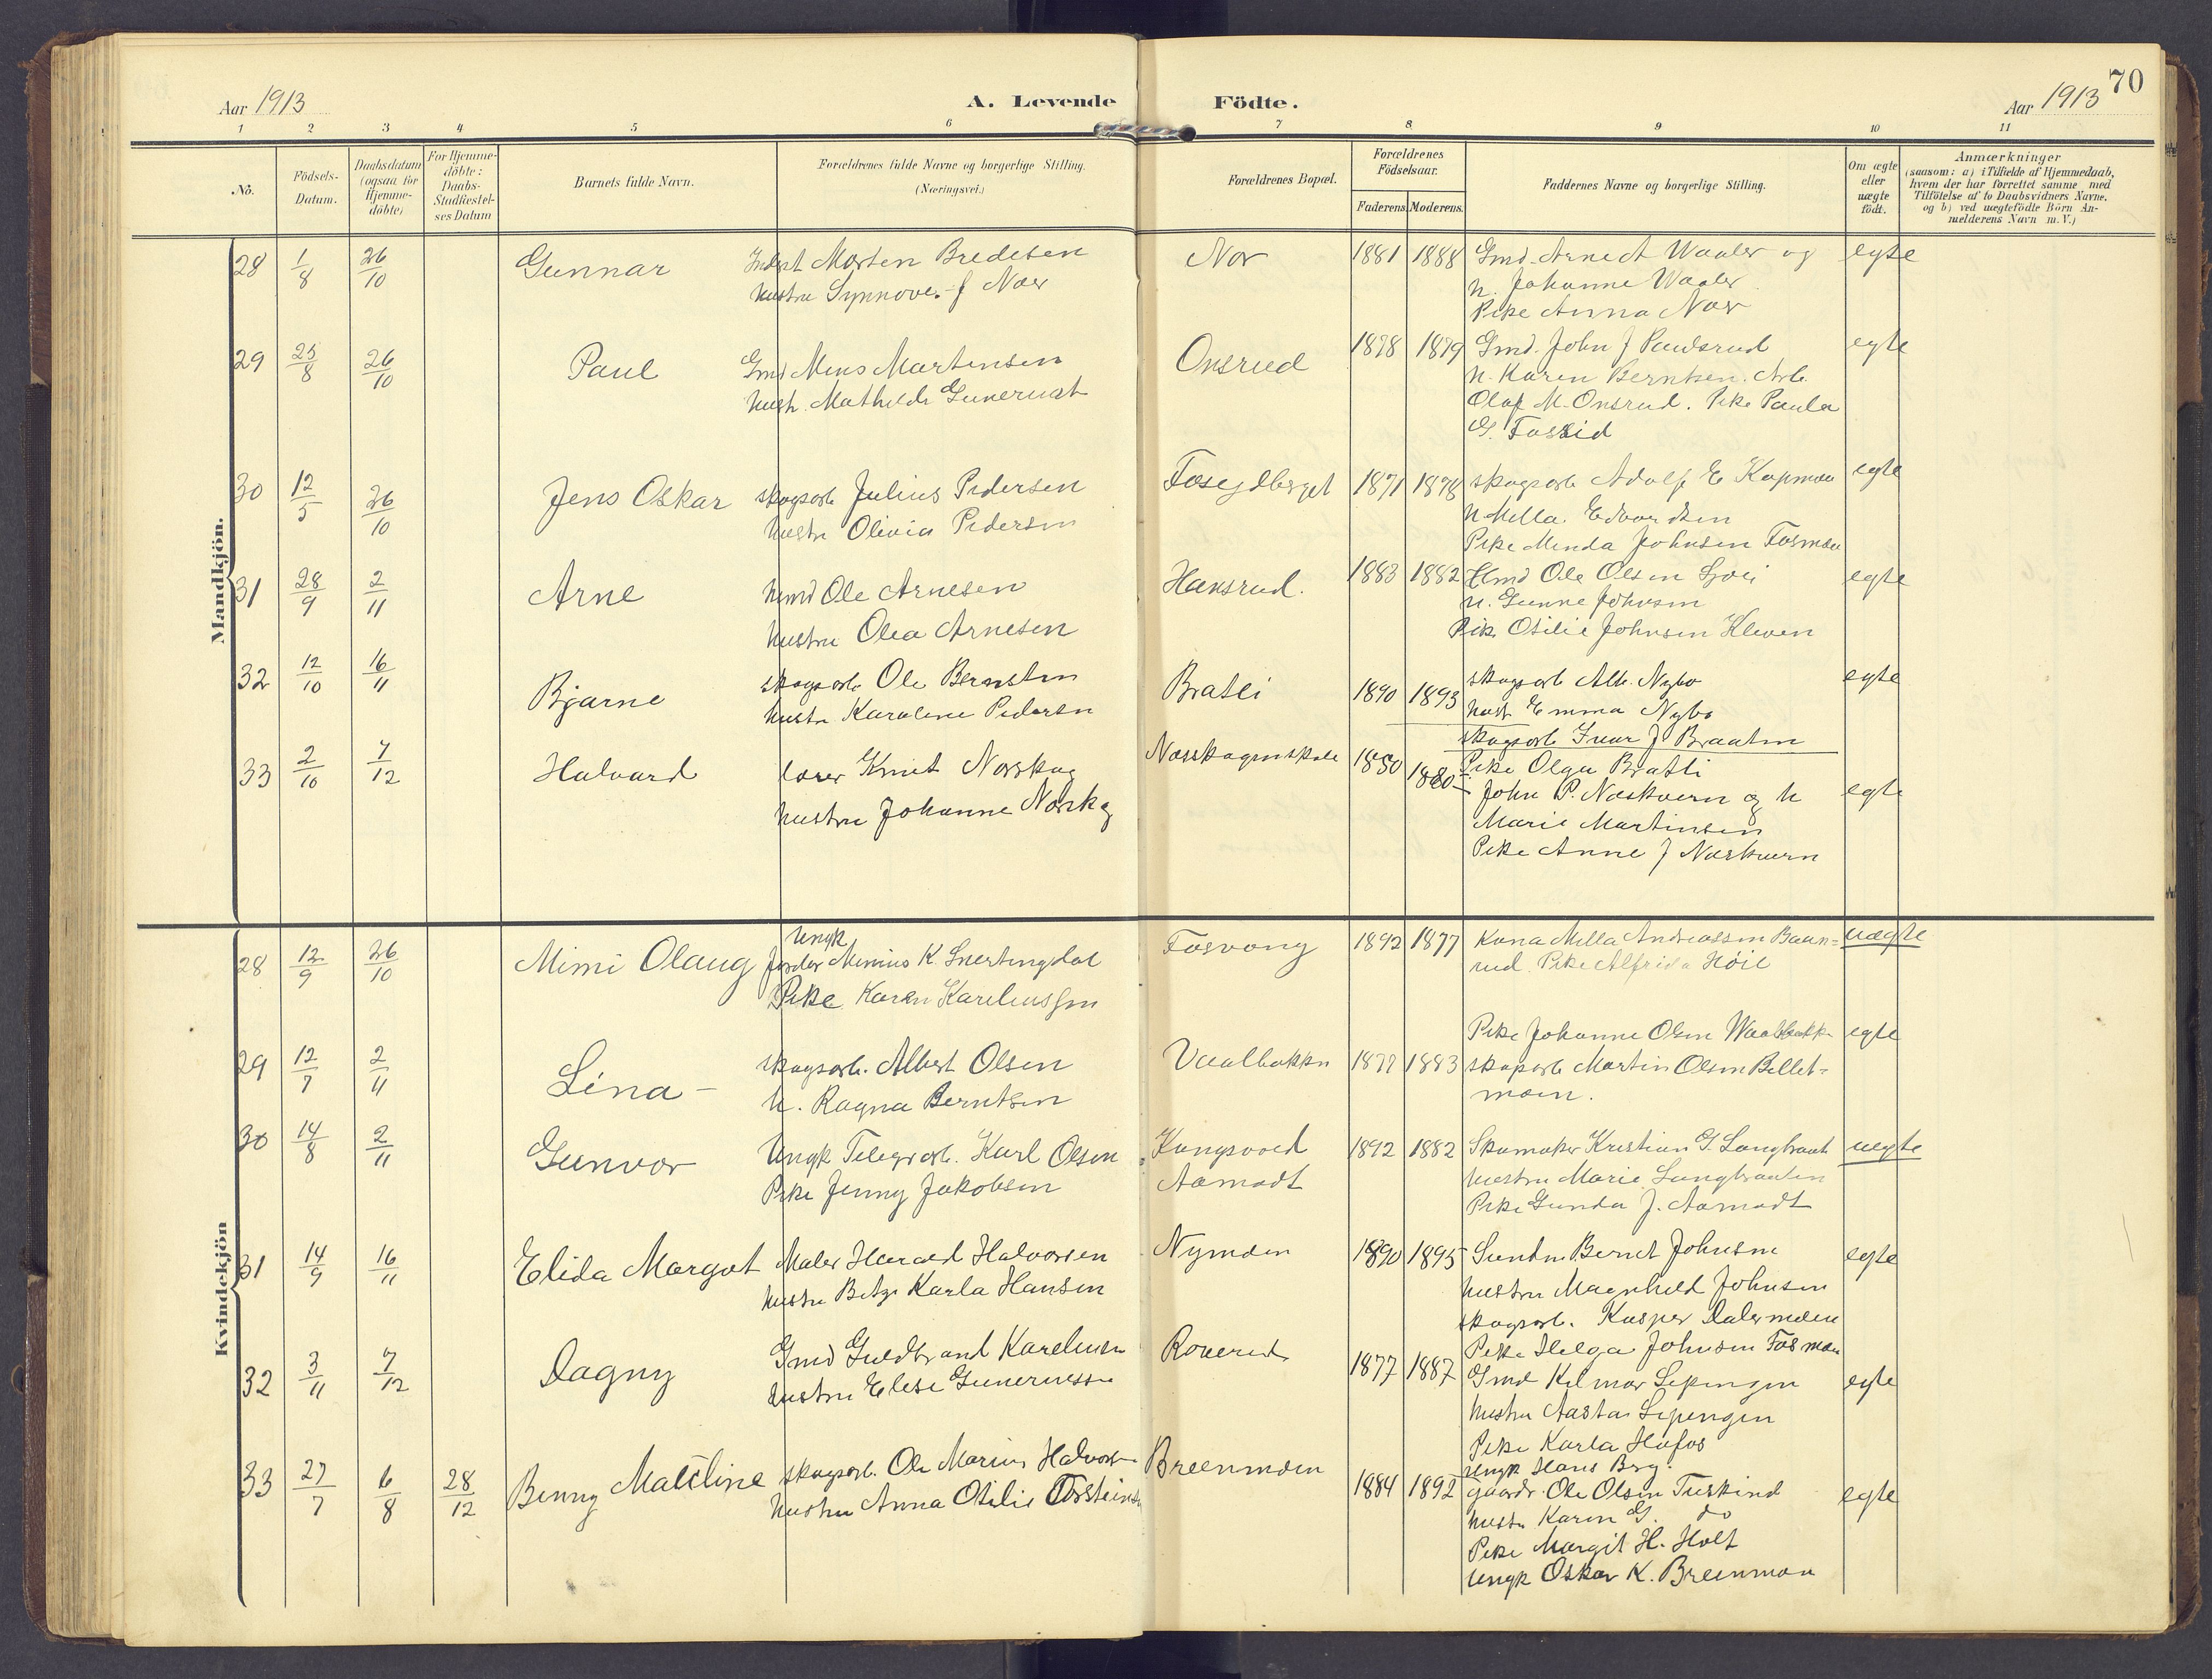 70
Aar 1913
A. Levende Födte.
Aar 1913
1 2 3 4 5 6 7 8 9 10 11
No.
Födsels-Datum.
Daabsdatum (ogsaa for Hjemme-döbte)
For Hjemme-döbte: Daabs-Stadfæstel-ses Datum
Barnets fulde Navn.
Forældrenes fulde Navne og borgerlige Stilling.
(Næringsvei.)
Forældrenes Bopæl.
Forældrenes Födselsaar.
Faderens. Moderens.
Faddernes Navne og borgerlige Stilling.
Om ægte eller uægte födt.
Anmærkninger
(saasom: a) i Tilfælde af Hjemmedaab,
hvem der har forrettet samme med
Tilföielse af to Daabsvidners Navne,
og b) ved uægtefödte Börn An-
melderens Navn m.V.)
Mandkjön.
28 1/8 26/10 Gunnar Morten Bredesen Nor 1881 1888 Gmd. Arne A Waaler og egte
hustru Synnove. J Nær
h. Johanne Waaler
Pike Anna Nær
29 25/8 26/10 Paul Gmd Mens Martensen Onsrud 1878 1879 Gmd. John J Paulsrud egte
hustr. Mathilde
h. Karen Berntsen. Arb.
Olaf M. Onsrud. Pike Paula
G. Fosslid
30 12/5 26/10 Jens Oskar skogsarb Julius Pedersen 1871 1878 skogsarb Adolf E Kopmoen egte
hustru Olivia Pedersen
h. Milla Edvardsen
Pike Minda Johnsen Fosmoen
31 28/9 2/11 Arne Hmd Ole Arnesen Hansrud. 1883 1882 Hmd Ole Olsen egte
hustru Olea Arnesen
h. Gunne Johnsen
Pike Otilie Johnsen Kleven
32 12/10 16/11 Bjarne skogsarb Ole Berntsen Bratli 1890 1893 skogsarb Alb. Nybo egte
hustr Karoline Pedersen
hust Emma Nybo
skogsarb Ivar J Braaten
Pike Olga Bratli
33 2/10 7/12 Halvard lærer Knut Norskog Næsskogenskole 1850 1880 John P. Næskvern og h egte
hustru Johanne Norskog
Marie Martinsen
Pike Anne J Næskvern
Kvindekjön
28 12/9 26/10 Mimi Olaug Ungk Minius K. Snertingdal Fosvang 1892 1877 Kona Milla Andreassen Baan= uægte
Pike Karen Kareliussen
rud. Pike Alfrida Höie
29 12/7 2/11 Lina - skogsarb. Albert Olsen Vaalbakken 1877 1883 Pike Johanne Olsen Waalbakk egte
h. Ragna Berntsen
skogsarb Martin Olsen Billet=
moen.
30 14/8 2/11 Gunvor Ungk Telegrarb. Karl Olsen Kongsvold 1892 1882 Skomaker Kristian G. Langbraat uegte
Pike Jenny Jakobsen Aamodt
hustru Marie Langbraaten
Pike Gunda J. Aamodt
31 14/9 16/11 Elida Margot Maler Harald Halvorsen Nymoen 1890 1895 Bernt Johnsen egte
hustru Betzi Karla Hansen
hustru Magnhild Johnsen
skogsarb. Kasper Dalermoen
Pike Helga Johnsen Fosmoen
32 3/11 7/12 Dagny Gmd Guldbrand Kareliusen Roverud 1877 1887 Gmd Hilmar Sepengen egte
hustru Elise Gunerussen
hustru Aasta Sepengen
Pike Karla Hafos
Ungk Hans Berg.
33 27/7 6/8 28/12 Benny Mattline skogsarb. Ole Marius Halvorsen Breenmoen 1884 1892 gaardr. Ole Olsen Tuskind egte
hustru Anna Otilie Torsteinsen
hustr Karen G. do
Pike Margit H. Holt
Ungk Oskar K. Breenmoen